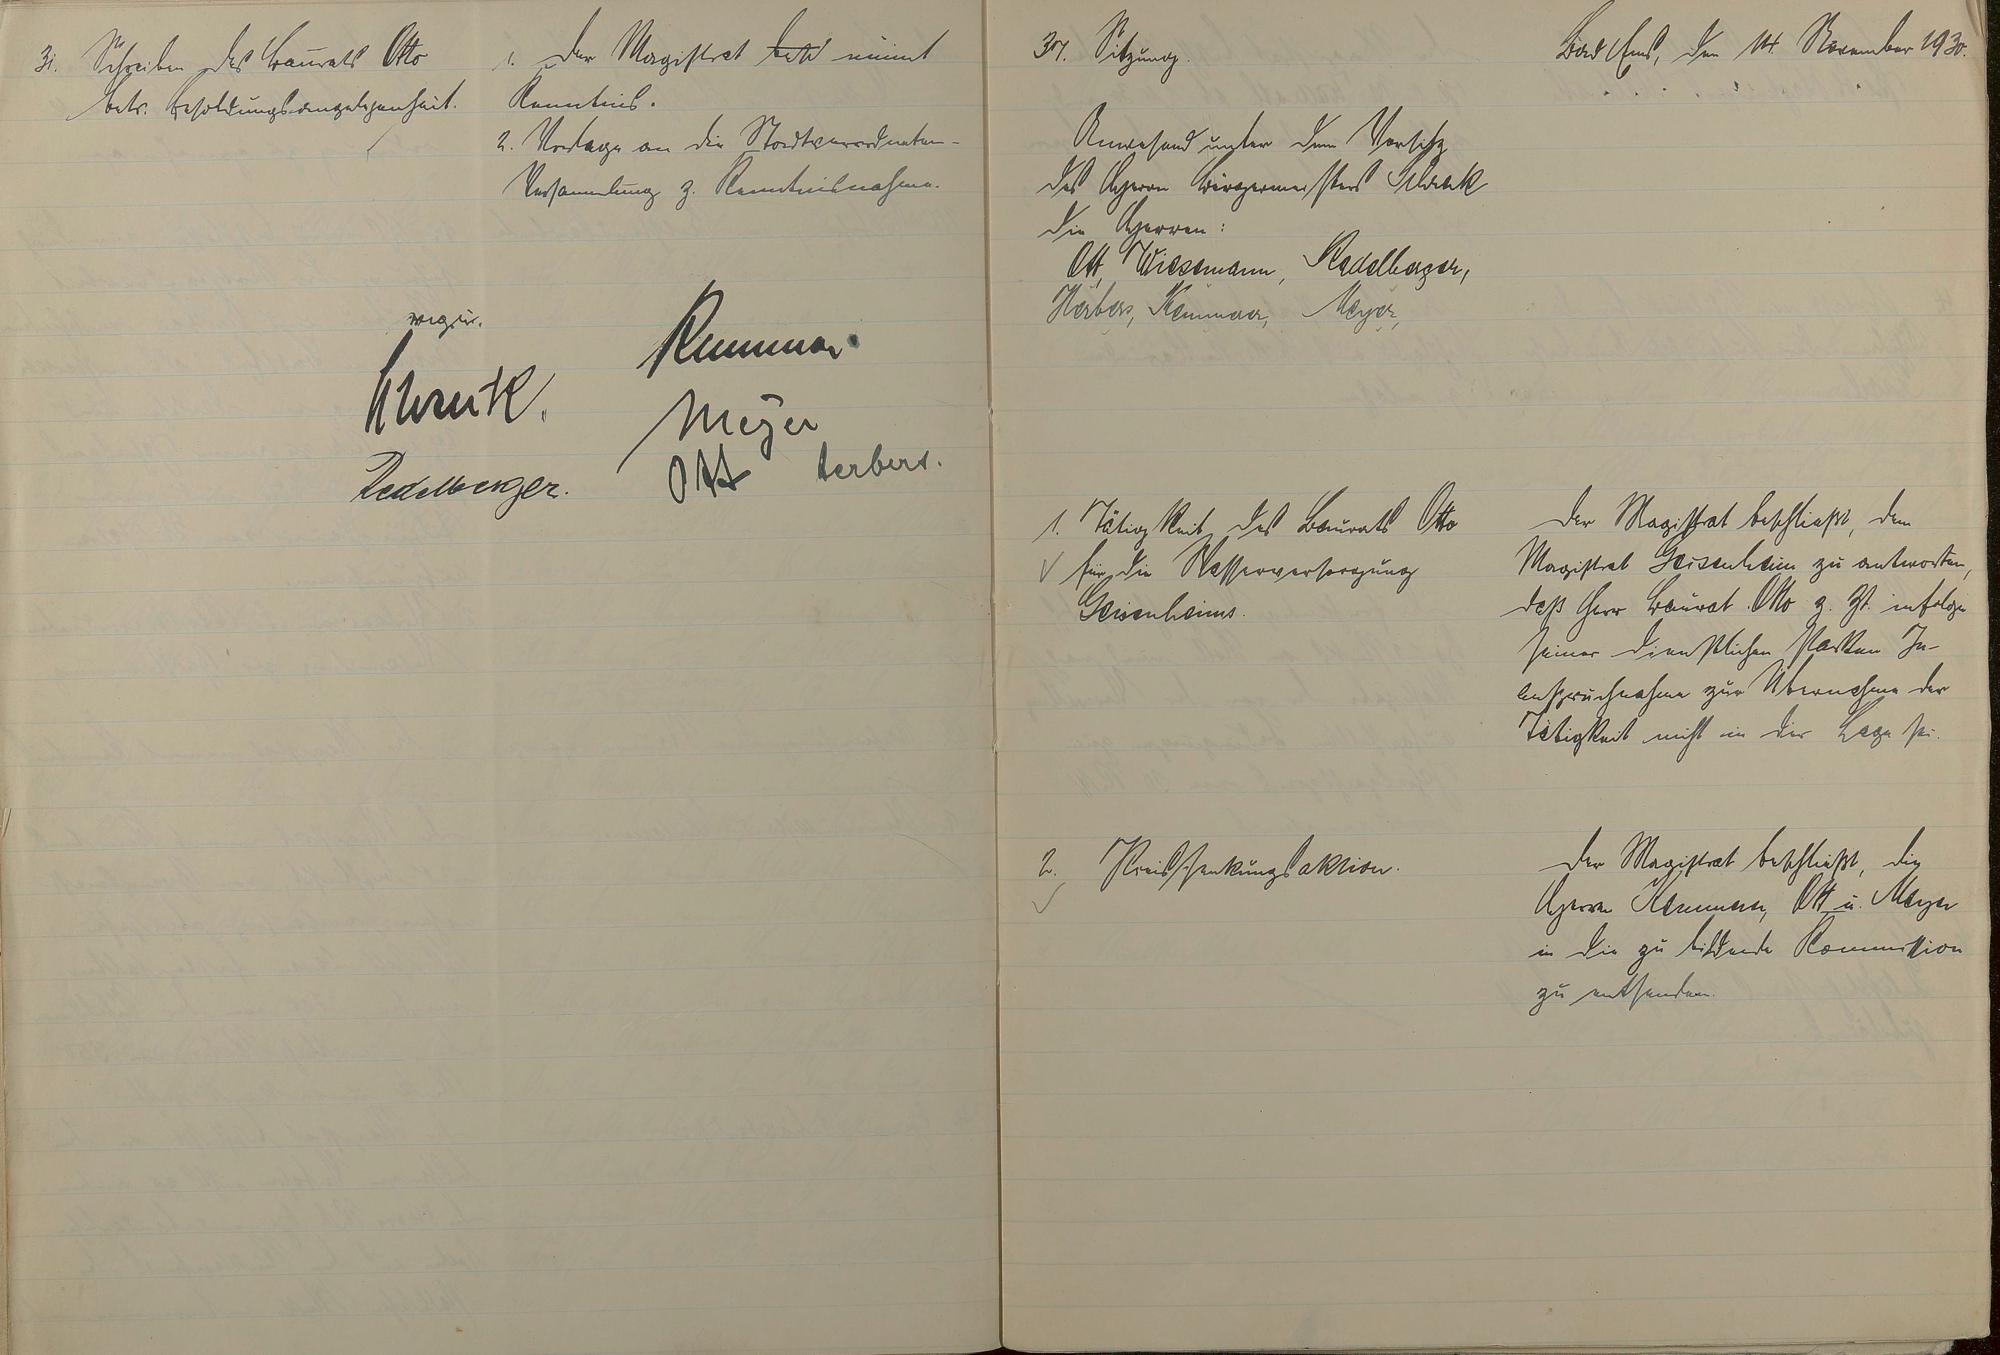 31. Schreiben des Baurats Otto
betr. Besoldungsangelegenheit.
1. Der Magistrat nimmt
Kenntnis.
2. Vorlage an die Stadtverordneten-
Versammlung z. Kenntnisnahme.
Schrenk.
Redelberger.
Kemmer
Meyer
Ott Herbers.
37. Sitzung.
Bad Ems, den 14. November 1930.
Anwesend unter dem Vorsitz
des Herrn Bürgermeisters
die Herren:
Ott, Wiesemann, Redelberger,
Herbers, Kemmer, Meyer,
1. Tätigkeit des Baurats Otto
für die Wasserversorgung
Geisenheims.
Der Magistrat beschließt, dem
Magistrat Geisenheim zu antworten,
daß Herr Baurat Otto z. Zt. infolge
seiner dienstlichen starken In-
anspruchnahme zur Übernahme der
Tätigkeit nicht in der Lage sei.
2. Preissenkungsaktion.
Der Magistrat beschließt, die
Herren Kemmer, Ott u. Meyer
in die zu bildende Kommission
zu entsenden.